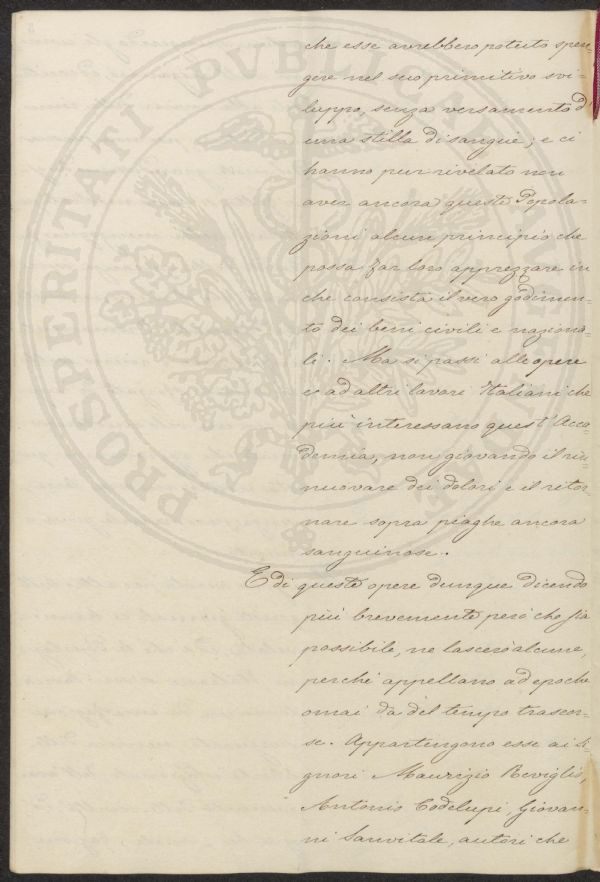 che esse avrebbero potuto spen-
gere nel suo primitivo svi-
luppo, senza versamento d'
una stilla di sangue; e ci
hanno pur rivelato non
aver ancora queste Popola-
zioni alcun principio che
possa far loro apprezzare in
che consista il vero godimen-
to dei beni civili e naziona-
li. Ma si passi alle opere
e ad altri lavori Italiani che
più interessano quest'Acca-
demia, non giovando il rin-
nuovare dei dolori e il ritor-
nare sopra piaghe ancora
sanguinose.
E di queste opere dunque dicendo
più brevemente però che sia
possibile, ne lascerò alcune,
perché appellano ad epoche
omai da del tempo trascor-
se. Appartengono esse ai Si-
gnori Maurizio Reviglio,
Antonio Codelupi, Giovan-
ni Sanvitale, autori che
PROSPERITATI PUBLICAE AUGENDAE